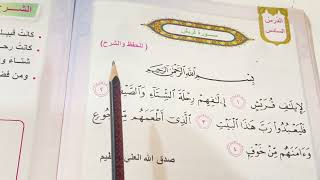 الدرس
السادس
سورة قريش
(للحفظ والشرح)
بِسْمِ اللَّهِ الرَّحْمَٰنِ الرَّحِيمِ
لِإِيلَافِ قُرَيْشٍ ١ إِۦلَافِهِمْ رِحْلَةَ الشِّتَاءِ وَالصَّيْفِ ٢
فَلْيَعْبُدُوا رَبَّ هَٰذَا الْبَيْتِ ٣ الَّذِي أَطْعَمَهُم مِّن جُوعٍ
وَءَامَنَهُم مِّنْ خَوْفٍ ٤
صدق الله العلي العظيم
الشرح
كانت
كانت
شتاء و
ومن فضل